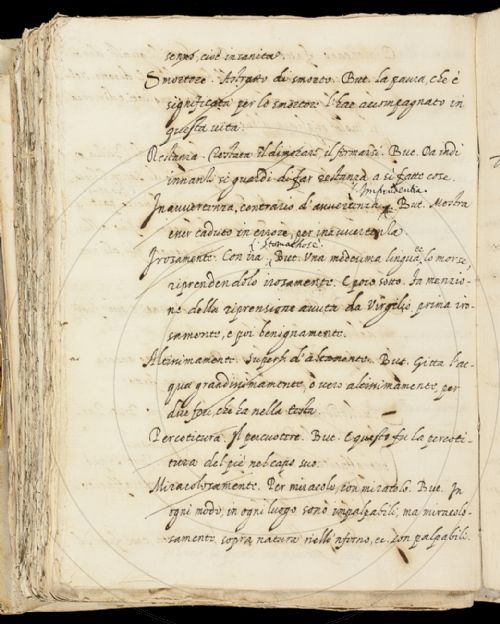 senno, cioè insanita.
Smortore. Astratto di smorto. But. la paura, che è
significata per lo smortore l'hae acompagnato in
questa vita.
Restanza. Restata il dimorare, il fermarsi. But. Da indi
innanzi si guardi di far restanza a sì fatte cose.
Imprudentia.
Inavvertenza, contrario d'avvertenza. But. Mostra
esser caduto in errore, per inavvertenza.
Stomachose.
Irosamente. Con ira. But. Una medesima lingua ec. lo morse,
riprendendolo irosamente. E poco sotto. Fa menzio-
ne della riprensione avuta da Virgilio, prima iro-
samente, e poi benignamente.
Altissimamente. Superl. d'altamente. But. Gitta l'ac-
qua grandissimamente, o vero altissimamente, per
due fori, che ha nella testa.
Percotitura. Il percuotere. But. E questo fu la percoti-
tura del piè nel capo suo.
Miracolosamente. Per miracolo, con miracolo. But. In
ogni modo, in ogni luogo sono impalpabili, ma miracolo-
samente sopra natura nell'inferno, ec. son palpabili.